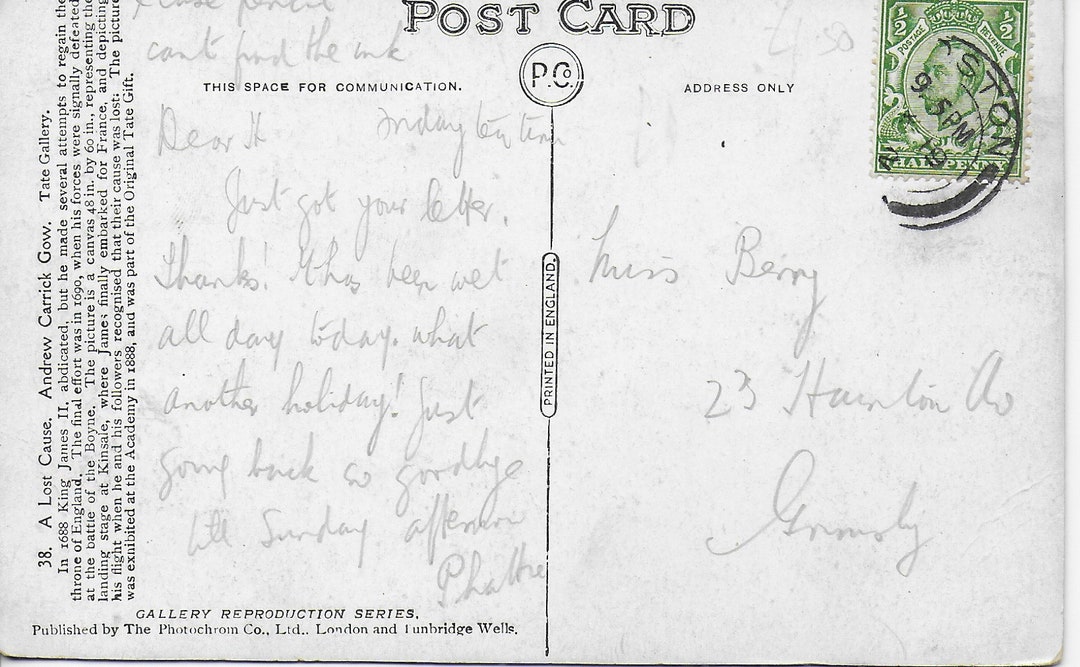 POST CARD
can't find the ink
P.Co.
THIS SPACE FOR COMMUNICATION.
ADDRESS ONLY
Dear H
Just got your letter.
Thanks! has been wet
all day today. what
another holiday! Just
going back so goodbye
till Sunday afternoon
Miss Berry
23 Av
Grimsby
PRINTED IN ENGLAND.
½ ½
POSTAGE REVENUE
HALFPENNY
STON
9 5 PM
38. A Lost Cause. Andrew Carrick Gow. Tate Gallery.
In 1688 King James II, abdicated, but he made several attempts to regain the
throne of England. The final effort was in 1690, when his forces were signally defeated
at the battle of the Boyne. The picture is a canvas 48 in. by 60 in., representing the
landing stage at Kinsale, where James finally embarked for France, and depicting
his flight when he and his followers recognised that their cause was lost. The picture
was exhibited at the Academy in 1888, and was part of the Original Tate Gift.
GALLERY REPRODUCTION SERIES.
Published by The Photochrom Co., Ltd., London and Tunbridge Wells.